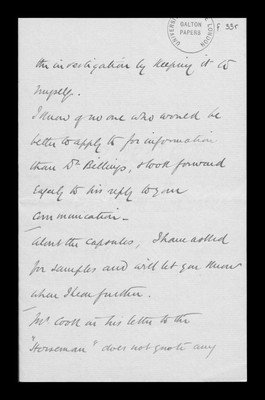 UNIVERSITY COLLEGE LONDON
GALTON
PAPERS
f 33r
the investigation by keeping it to
myself.
I know of no one who would be
better to apply to for information
than Dr Billings, & look forward
eagerly to his reply to your
communication _
About the capsules, I have asked
for samples and will let you know
when I hear further.
Mr Cook in his letter to the
"Horseman" does not quote any